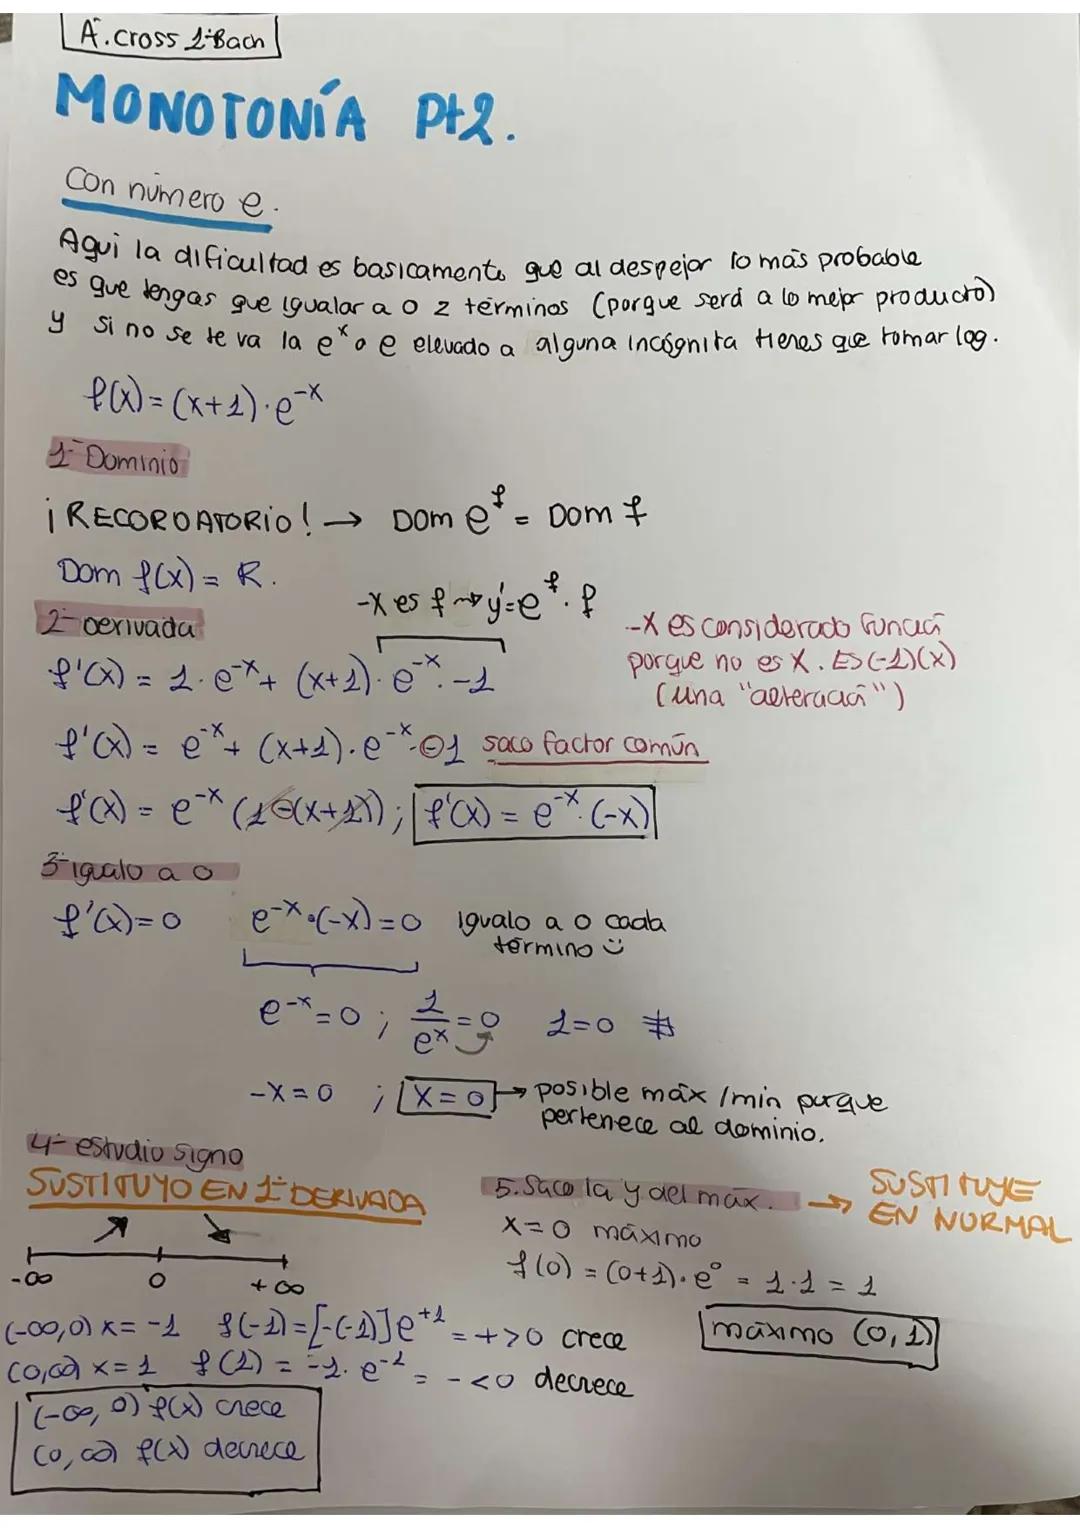 A.cross 1ºBach
MONOTONÍA Pt2.
Con número e.
Aqui la dificultad es basicamente que al despejar lo más probable
es que tengas que igualar a 0 2 términos (porque será a lo mejor producto)
y si no se te va la eˣ o e elevado a alguna incógnita tienes que tomar log.
f(x) = (x+1)·e⁻ˣ
1- Dominio
¡RECORDATORIO! → Dom e^f = Dom f
Dom f(x) = R.
-x es f → y'=e^f · f
2- Derivada
-x es considerado función
porque no es x. Es (-1)(x)
(una "alteración")
f'(x) = 1·e⁻ˣ + (x+1)·e⁻ˣ·-1
f'(x) = e⁻ˣ + (x+1)·e⁻ˣ·-1 saco factor común
f'(x) = e⁻ˣ (1-(x+1)); f'(x) = e⁻ˣ·(-x)
3- igualo a 0
f'(x)=0 e⁻ˣ·(-x)=0 igualo a 0 cada
término
e⁻ˣ=0 ; 1/eˣ = 0 1=0 ∄
-x=0 ; x=0 → posible máx/min porque
pertenece al dominio.
4- estudio signo
SUSTITUYO EN 1ª DERIVADA
-∞ 0 +∞
(-∞,0) x=-1 f(-1)=[-(-1)]e⁺¹ = +>0 crece
(0,∞) x=1 f(1) = -1·e⁻¹ = -<0 decrece
(-∞,0) f(x) crece
(0,∞) f(x) decrece
5. Saco la y del máx. → SUSTITUYE
EN NORMAL
x=0 máximo
f(0) = (0+1)·e⁰ = 1·1 = 1
máximo (0,1)